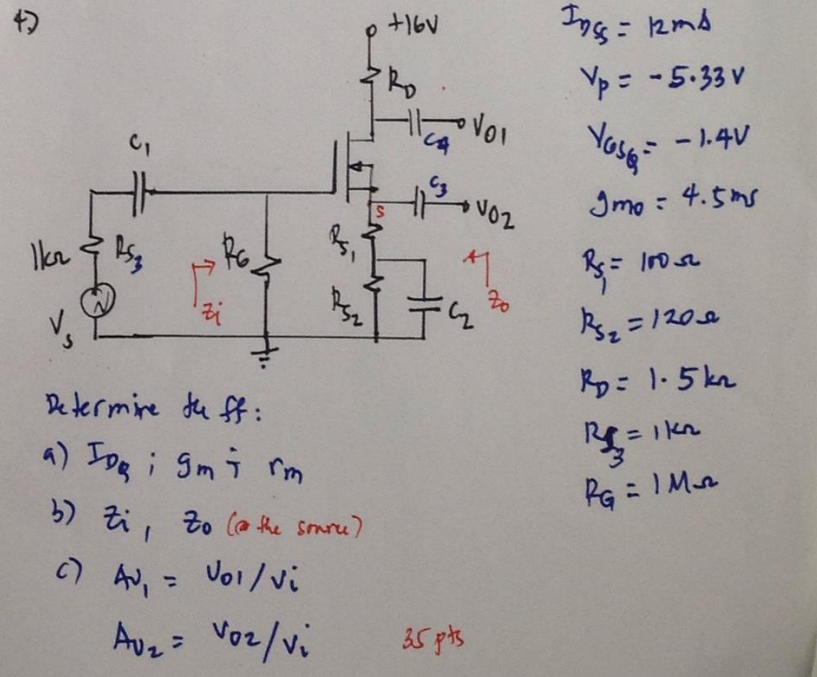 4)
+16V
RD
C4
VO1
C1
C3
VO2
S
1kΩ
RS3
RG
RS1
Zi
RS2
C2
Zo
Vs
IDSS = 12mA
Vp = -5.33V
VGSQ = -1.4V
gmo = 4.5ms
RS1 = 100Ω
RS2 = 120Ω
RD = 1.5kΩ
RS3 = 1kΩ
RG = 1MΩ
Determine the ff:
a) IDQ ; gm ; rm
b) Zi, Zo (@ the source)
c) AV1 = VO1/Vi
AV2 = VO2/Vi
35 pts